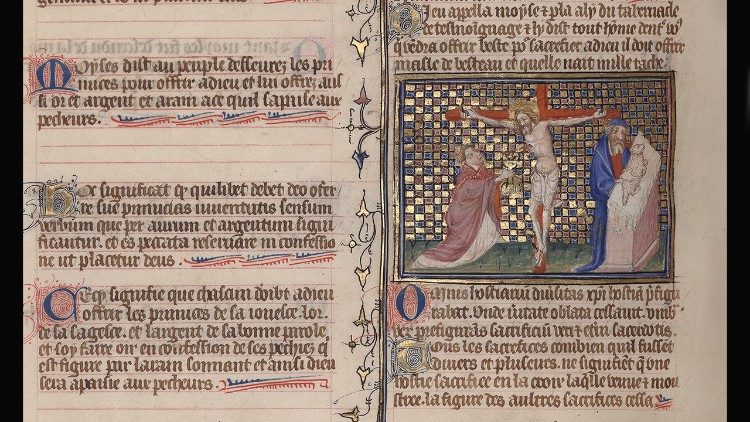 Moyses dist au peuple desseurez les pri
mices pour offrir a dieu et lui offrez aus
si or et argent et arain a ce quil sapaise aux
pecheurs.
Hoc significat qͥ quilibet debet deo offer
re sue primicias iuventutis sensum
verbum que per aurum et argentum signi
ficantur. et os peccata reserare in confessio
ne ut placetur deus.
Cecy signifie que chascun doibt a dieu
offrir les primices de sa iouesce. lor
de sa sagesce. et largent de sa bonne parole
et soy faire oir en confession de ses pechiez q̄
est figure par larain sonnant et ainsi dieu
sera apaisie aux pecheurs.
Dieu appella moyse et pla a ly du tabernacle
de tesmoignage et ly dist tout home dent
offrir beste por sacrefice a dieu il doit offrir
masle de besteau et quelle nait nulle tache.
Omnis hostiarum diversitas xp̄i hostiā p̄figu
rabat. Unde oblata cessarunt.
prefiguras sacrificiū veri et sacerdotis.
Tous les sacrefices combien quil fussent
divers et pluseurs. ne signifiēt q̄ une
hostie sacrefice en la croix laq̄lle venue et mou
stree. la figure des aultres sacrefices cessa